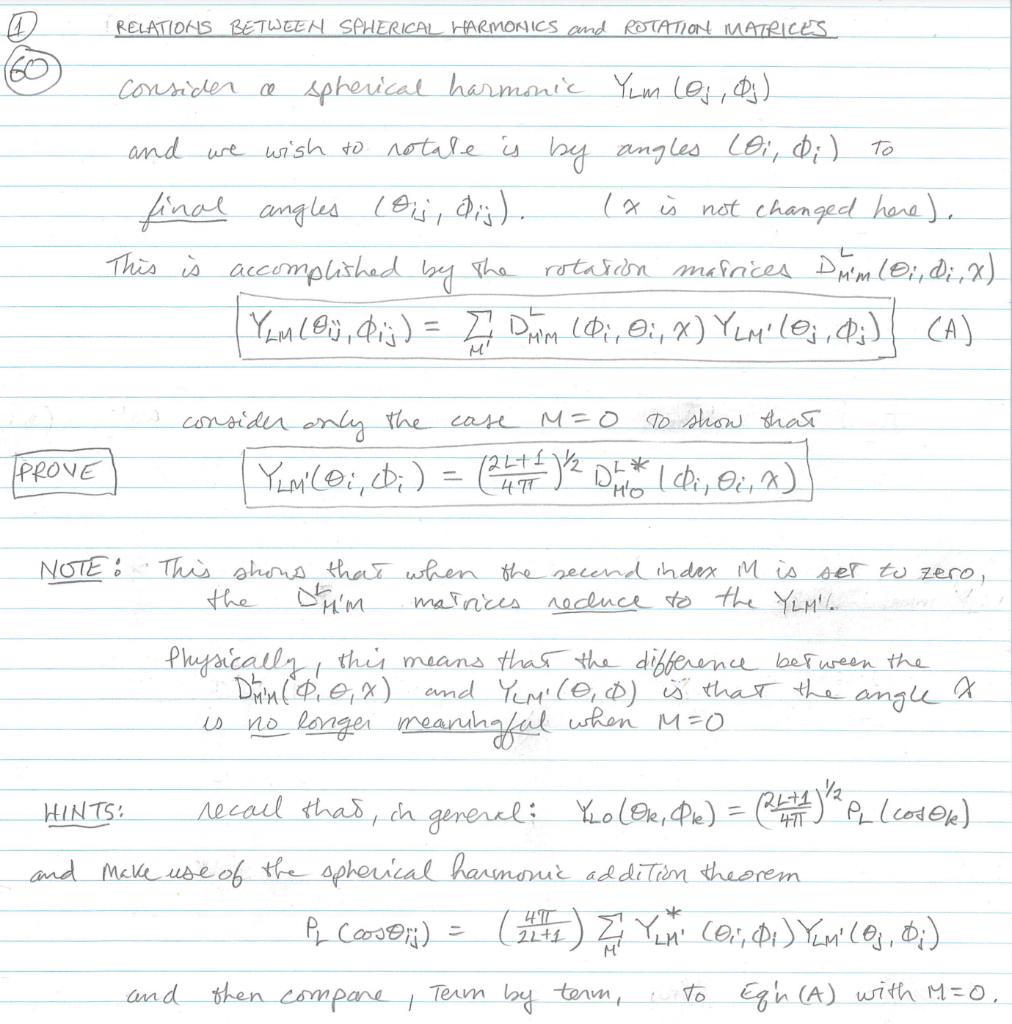 1
RELATIONS BETWEEN SPHERICAL HARMONICS and ROTATION MATRICES
60
Consider a spherical harmonic Y_LM (θj, Φj)
and we wish to rotate is by angles (θi, Φi) to
final angles (θij, Φij). (χ is not changed here).
This is accomplished by the rotation matrices D^L_M'M (θi, Φi, χ)
Y_LM (θij, Φij) = Σ_M' D^L_M'M (Φi, θi, χ) Y_LM' (θj, Φj) (A)
consider only the case M=0 to show that
PROVE
Y_LM' (θi, Φi) = (2L+1/4π)^1/2 D^L*_M'0 (Φi, θi, χ)
NOTE: This shows that when the second index M is set to zero,
the D^L_M'M matrices reduce to the Y_LM'.
Physically, this means that the difference between the
D^L_M'M (Φ, θ, χ) and Y_LM' (θ, Φ) is that the angle χ
is no longer meaningful when M=0
HINTS: recall that, in general: Y_L0 (θk, Φk) = (2L+1/4π)^1/2 P_L (cosθk)
and make use of the spherical harmonic addition theorem
P_L (cosθij) = (4π/2L+1) Σ_M' Y*_LM' (θi, Φi) Y_LM' (θj, Φj)
and then compare, term by term, to Eq'n (A) with M=0.